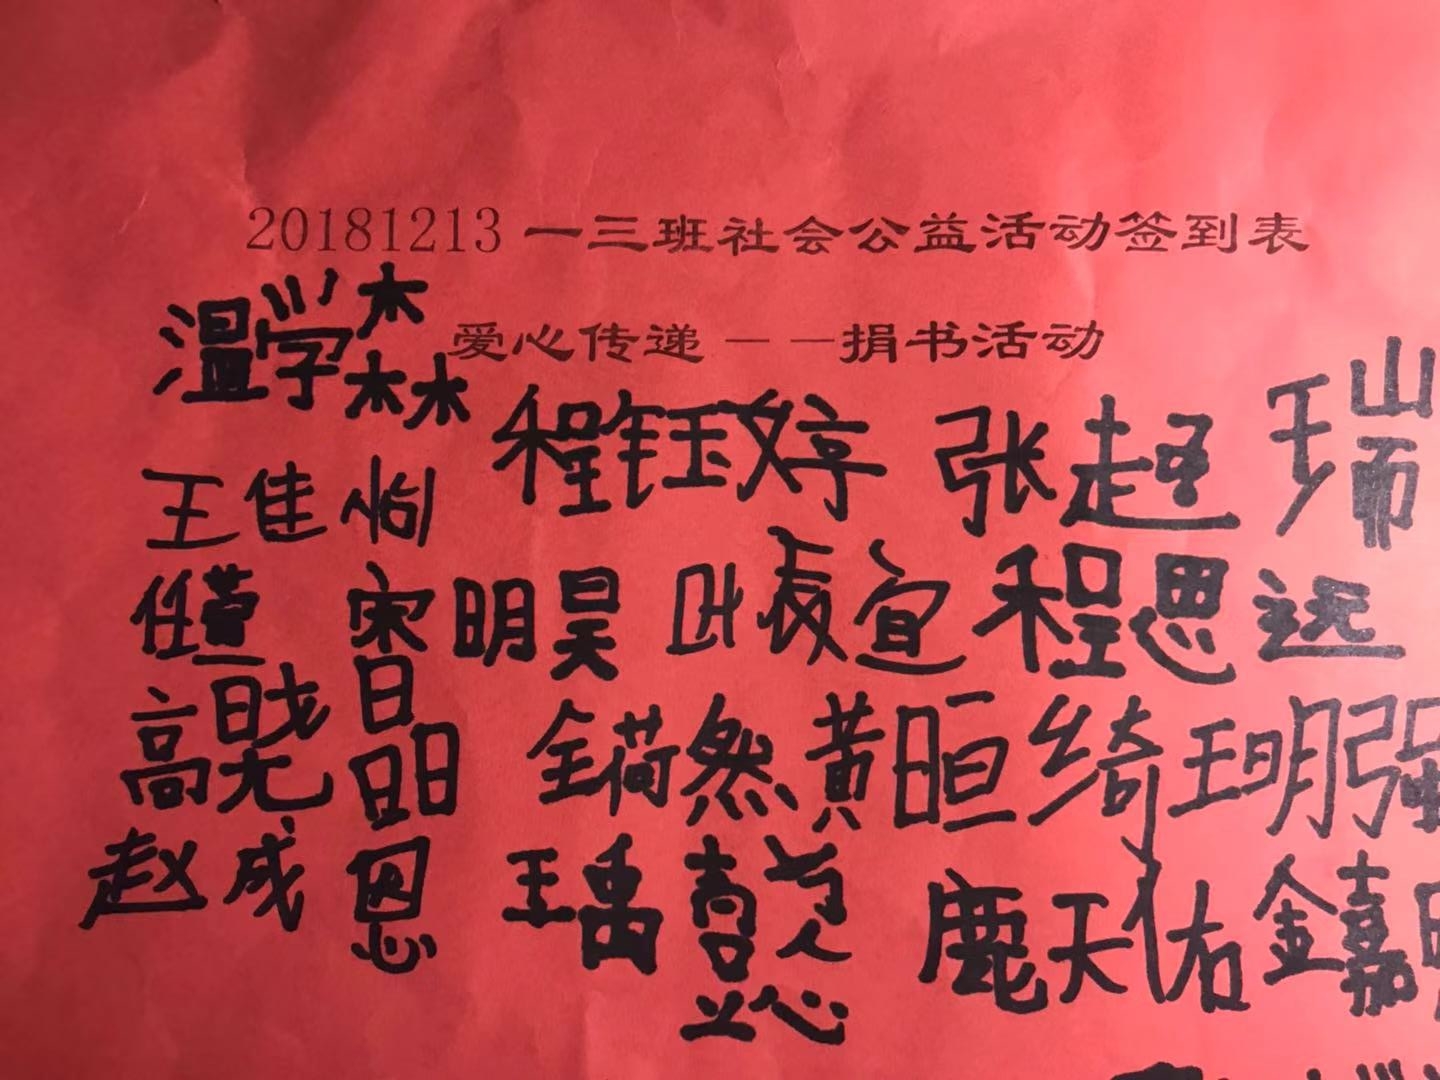 20181213 一三班社会公益活动签到表
爱心传递 — — 捐书活动
温学森
程钰婷 张超 王瑞
王佳怡
任萱 宋明昊 宣 程思远
高晓晶 全荷然 黄晅绮 王明强
赵成恩 王禹 懿 鹿天佑 金嘉